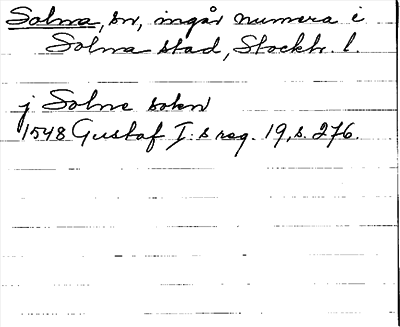 Solna, sn, ingår numera i
Solna stad, Stockh. l.
j Solne sokn
1548 Gustaf I:s reg. 19, s. 276.